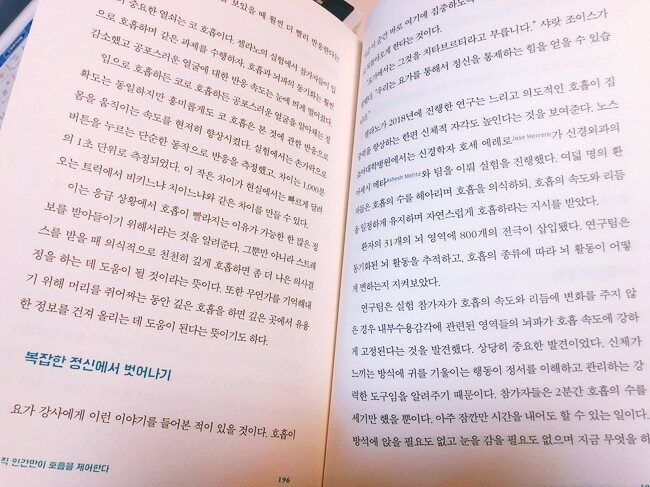 보았을 때 훨씬 더 빨리 반응한다는
중요한 열쇠는 코 호흡이다. 젤라노의 실험에서 참가자들이 입
으로 호흡하며 같은 과제를 수행하자, 호흡과 뇌파의 동기화는 훨씬
감소했고 공포스러운 얼굴에 대한 반응 속도는 눈에 띄게 떨어졌다.
입으로 호흡하든 코로 호흡하든 공포스러운 얼굴을 알아채는 정
확도는 동일하지만 흥미롭게도 코 호흡은 본 것에 관한 반응으로
몸을 움직이는 속도를 현저히 향상시켰다. 실험에서는 손가락으로
버튼을 누르는 단순한 동작으로 반응을 측정했고, 차이는 1,000분
의 1초 단위로 측정되었다. 이 작은 차이가 현실에서는 빠르게 달려
오는 트럭에서 비키느냐 치이느냐와 같은 차이를 만들 수 있다.
이는 응급 상황에서 호흡이 빨라지는 이유가 가능한 한 많은 정
보를 받아들이기 위해서라는 것을 알려준다. 그뿐만 아니라 스트레
스를 받을 때 의식적으로 천천히 깊게 호흡하면 좀 더 나은 의사결
정을 하는 데 도움이 될 것이라는 뜻이다. 또한 무언가를 기억해내
기 위해 머리를 쥐어짜는 동안 깊은 호흡을 하면 깊은 곳에서 유용
한 정보를 건져 올리는 데 도움이 된다는 뜻이기도 하다.
복잡한 정신에서 벗어나기
요가 강사에게 이런 이야기를 들어본 적이 있을 것이다. 호흡이
직 인간만이 호흡을 제어한다
196
순간 바로 여기에 집중하도록
되돌려오게 한다는 것이다.
"요가에서는 그것을 치타브르티라고 부릅니다." 샤랏 조이스가
말했다. "우리는 요가를 통해서 정신을 통제하는 힘을 얻을 수 있습
니다."
젤라노가 2018년에 진행한 연구는 느리고 의도적인 호흡이 집
중력을 향상하는 한편 신체적 자각도 높인다는 것을 보여준다. 노스
쇼어대학병원에서는 신경학자 호세 에레로Jose Herrero가 신경외과의
아셰시 메타Ashesh Mehta와 팀을 이뤄 실험을 진행했다. 여덟 명의 환
자들은 호흡의 수를 헤아리며 호흡을 의식하되, 호흡의 속도와 리듬
을 일정하게 유지하며 자연스럽게 호흡하라는 지시를 받았다.
환자의 31개의 뇌 영역에 800개의 전극이 삽입됐다. 연구팀은
동기화된 뇌 활동을 추적하고, 호흡의 종류에 따라 뇌 활동이 어떻
게 변하는지 지켜보았다.
연구팀은 실험 참가자가 호흡의 속도와 리듬에 변화를 주지 않
은 경우 내부수용감각에 관련된 영역들의 뇌파가 호흡 속도에 강하
게 고정된다는 것을 발견했다. 상당히 중요한 발견이었다. 신체가
느끼는 방식에 귀를 기울이는 행동이 정서를 이해하고 관리하는 강
력한 도구임을 알려주기 때문이다. 참가자들은 2분간 호흡의 수를
세기만 했을 뿐이다. 아주 잠깐만 시간을 내어도 할 수 있는 일이다.
방석에 앉을 필요도 없고 눈을 감을 필요도 없으며 지금 무엇을 하